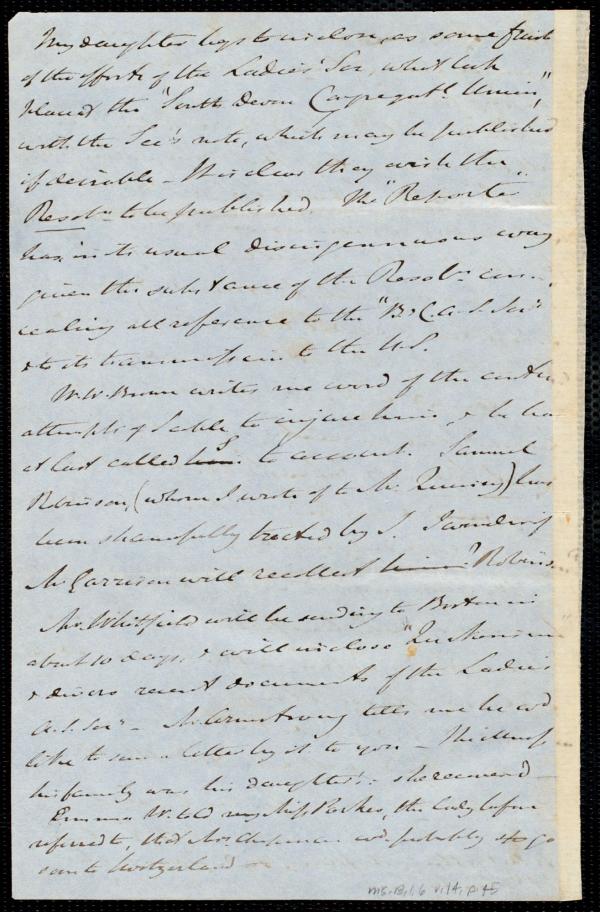 My daughter begs to inclose, as some fruit
of the efforts of the Ladies' Soc, what took
place at the "South Devon Congregatl. Union",
with the Sec's note, which may be published
if desirable - It is clear they wish the
Resolns to be published. The "Reporter"
has in its usual disingenuous way
given the substance of the Resolns con-
cealing all reference to the "B. & C. A. S. Soc"
& to its transmission to the U.S.
W. W. Brown writes me word of the
attempts of Scoble to injure him, & he has
at last called him S to account. Samuel
Robinson, (whom I wrote of to Mr. Quincy) has
been shamefully treated by S. I wonder if
Mr Garrison will recollect him? Robinson
Mr. Whitfield will be sending to Boston in
about 10 days, & will inclose
& divers recent documents of the Ladies
A. S. Socy - Mr Armstrong tells me he wd
like to see a letter by it to you - The illness
his family was his daughter's - she recovered -
Emma W. told my Miss Parkes, the lady before
referred to, that Mrs. Chapman wd probably go
soon to Switzerland
MS. B.1.6 v.14, p.45